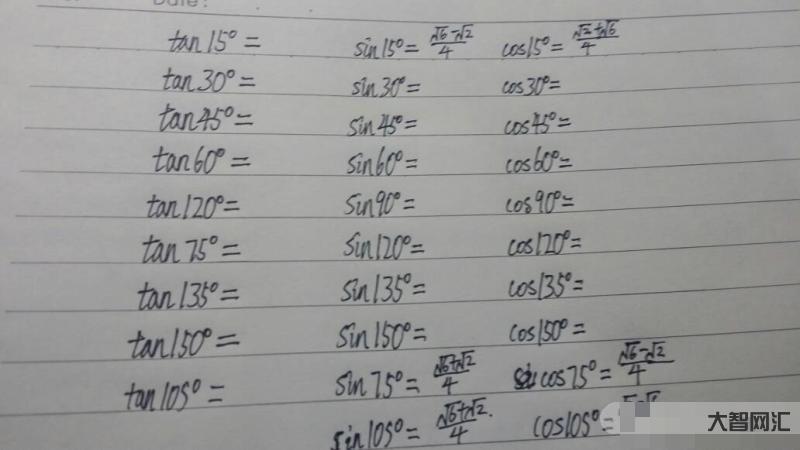 Date:
tan15°= sin15°= √6-√2/4 cos15°= √2+√6/4
tan30°= sin30°= cos30°=
tan45°= sin45°= cos45°=
tan60°= sin60°= cos60°=
tan120°= sin90°= cos90°=
tan75°= sin120°= cos120°=
tan135°= sin135°= cos135°=
tan150°= sin150°= cos150°=
tan105°= sin75°= √6+√2/4 cos75°= √6-√2/4
sin105°= √6+√2/4. cos105°=
大智网汇